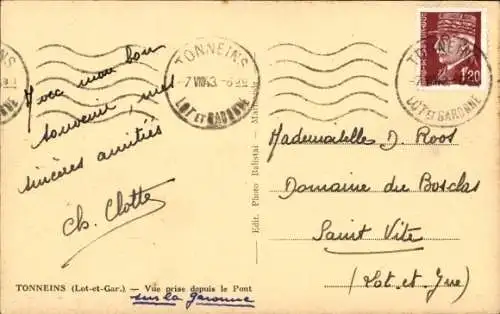 Avec mon bon
souvenir, mes
sincères amitiés
Ch. Clotte
TONNEINS
7 VIII 43
LOT ET GARONNE
TONNEINS
LOT ET GARONNE
1f20
Mademoiselle D. Roos
Domaine du Bosclas
Saint Vite
(Lot et Gne)
Edit. Photo Balistai
TONNEINS (Lot-et-Gar.) — Vue prise depuis le Pont
sur la Garonne